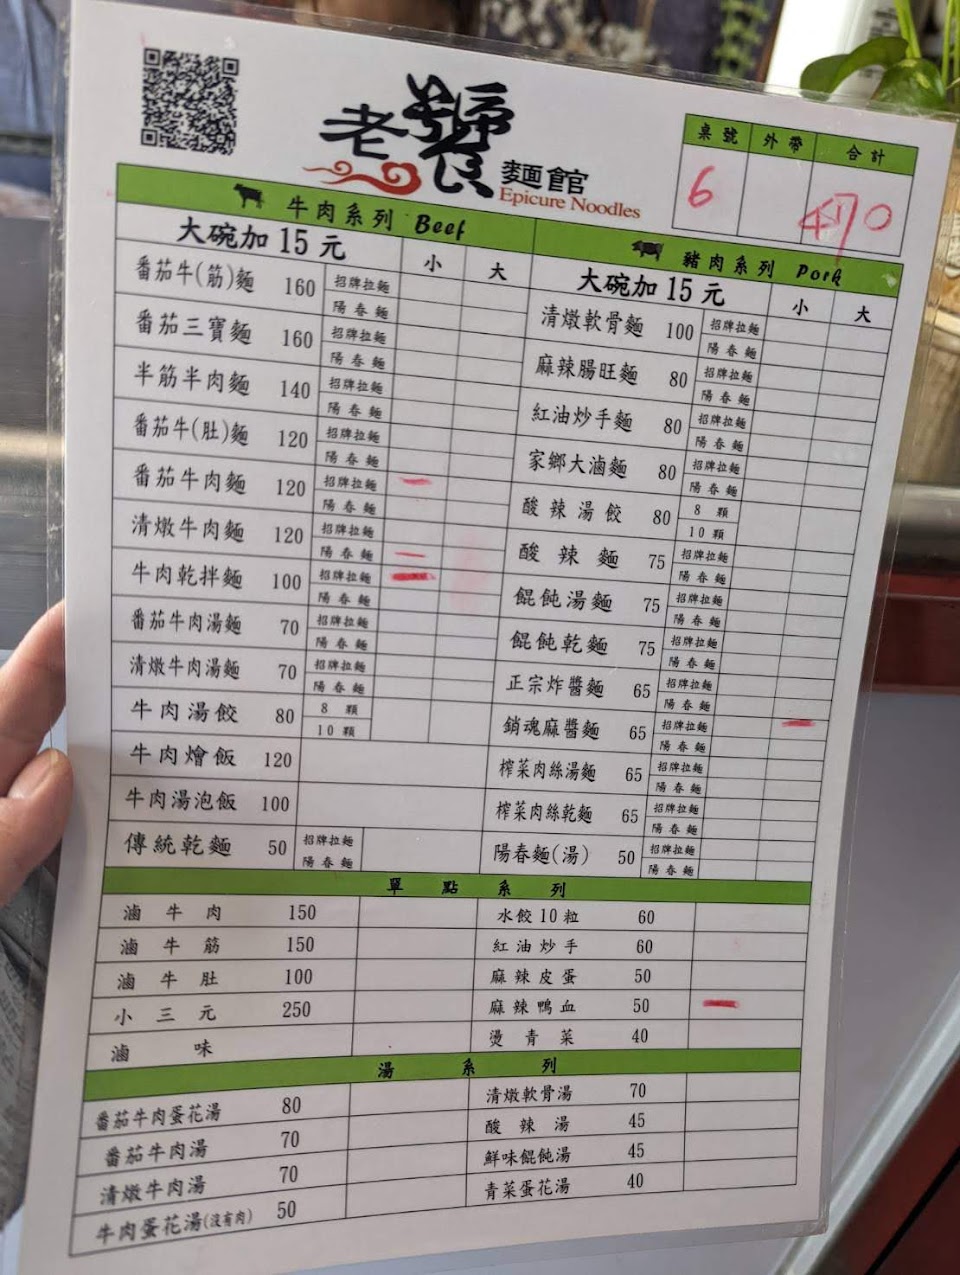 老饕麵館
Epicure Noodles
桌號 外帶 合計
6 470
牛肉系列 Beef
大碗加15元 小 大
番茄牛(筋)麵 160 招牌拉麵
陽春麵
番茄三寶麵 160 招牌拉麵
陽春麵
半筋半肉麵 140 招牌拉麵
陽春麵
番茄牛(肚)麵 120 招牌拉麵
陽春麵
番茄牛肉麵 120 招牌拉麵
陽春麵
清燉牛肉麵 120 招牌拉麵
陽春麵
牛肉乾拌麵 100 招牌拉麵
陽春麵
番茄牛肉湯麵 70 招牌拉麵
陽春麵
清燉牛肉湯麵 70 招牌拉麵
陽春麵
牛肉湯餃 80 8顆
10顆
牛肉燴飯 120
牛肉湯泡飯 100
傳統乾麵 50 招牌拉麵
陽春麵
豬肉系列 Pork
大碗加15元 小 大
清燉軟骨麵 100 招牌拉麵
陽春麵
麻辣腸旺麵 80 招牌拉麵
陽春麵
紅油炒手麵 80 招牌拉麵
陽春麵
家鄉大滷麵 80 招牌拉麵
陽春麵
酸辣湯餃 80 8顆
10顆
酸辣麵 75 招牌拉麵
陽春麵
餛飩湯麵 75 招牌拉麵
陽春麵
餛飩乾麵 75 招牌拉麵
陽春麵
正宗炸醬麵 65 招牌拉麵
陽春麵
銷魂麻醬麵 65 招牌拉麵
陽春麵
榨菜肉絲湯麵 65 招牌拉麵
陽春麵
榨菜肉絲乾麵 65 招牌拉麵
陽春麵
陽春麵(湯) 50 招牌拉麵
陽春麵
單點系列
滷牛肉 150
滷牛筋 150
滷牛肚 100
小三元 250
滷味
水餃10粒 60
紅油炒手 60
麻辣皮蛋 50
麻辣鴨血 50
燙青菜 40
湯系列
番茄牛肉蛋花湯 80
番茄牛肉湯 70
清燉牛肉湯 70
牛肉蛋花湯(沒有肉) 50
清燉軟骨湯 70
酸辣湯 45
鮮味餛飩湯 45
青菜蛋花湯 40